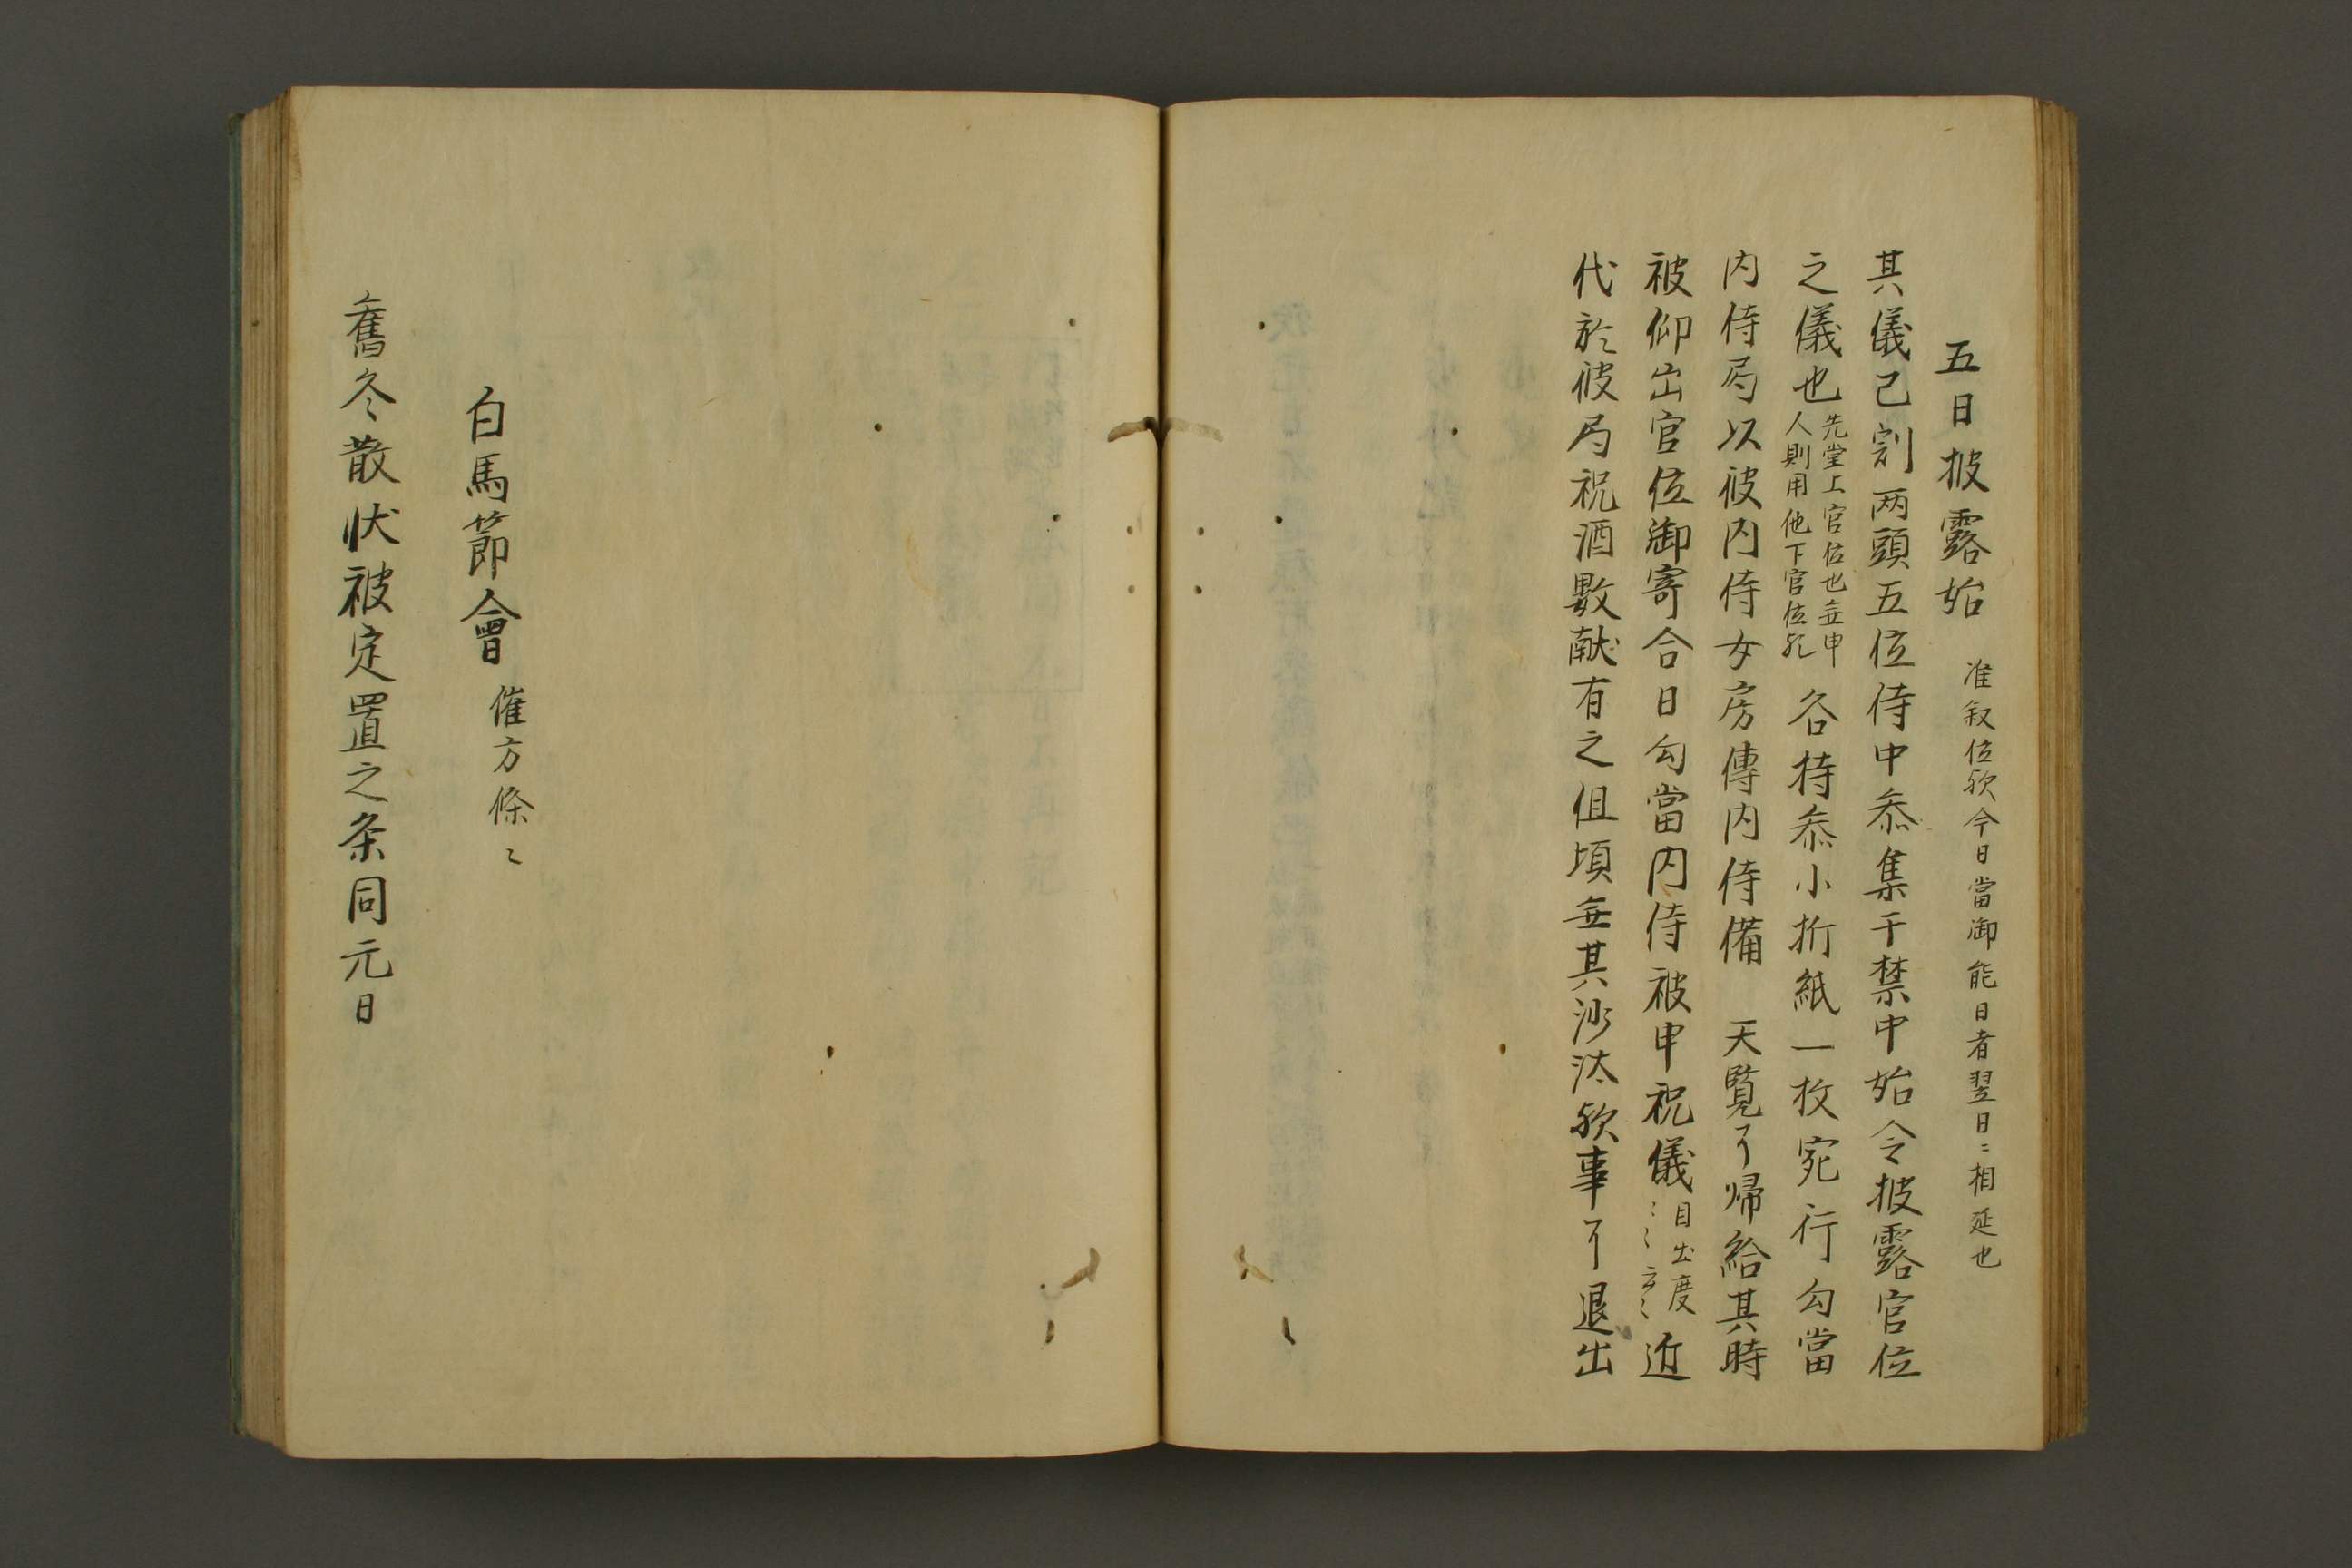 五日披露始 准叙位欤今日當御能日者翌日〻相延也
其儀己剋両頭五位侍中参集于禁中始令披露官位
之儀也 先堂上官位也無申
人則用他下官位欤 各持参小折紙一枚宛行勾當
内侍局以彼内侍女房傳内侍備　天覧了帰給其時
被仰出官位御寄合日勾當内侍被申祝儀 目出度
〻〻云〻 近
代於彼局祝酒數献有之但頃無其沙汰欤事了退出
白馬節會 催方條〻
舊冬散状被定置之条同元日